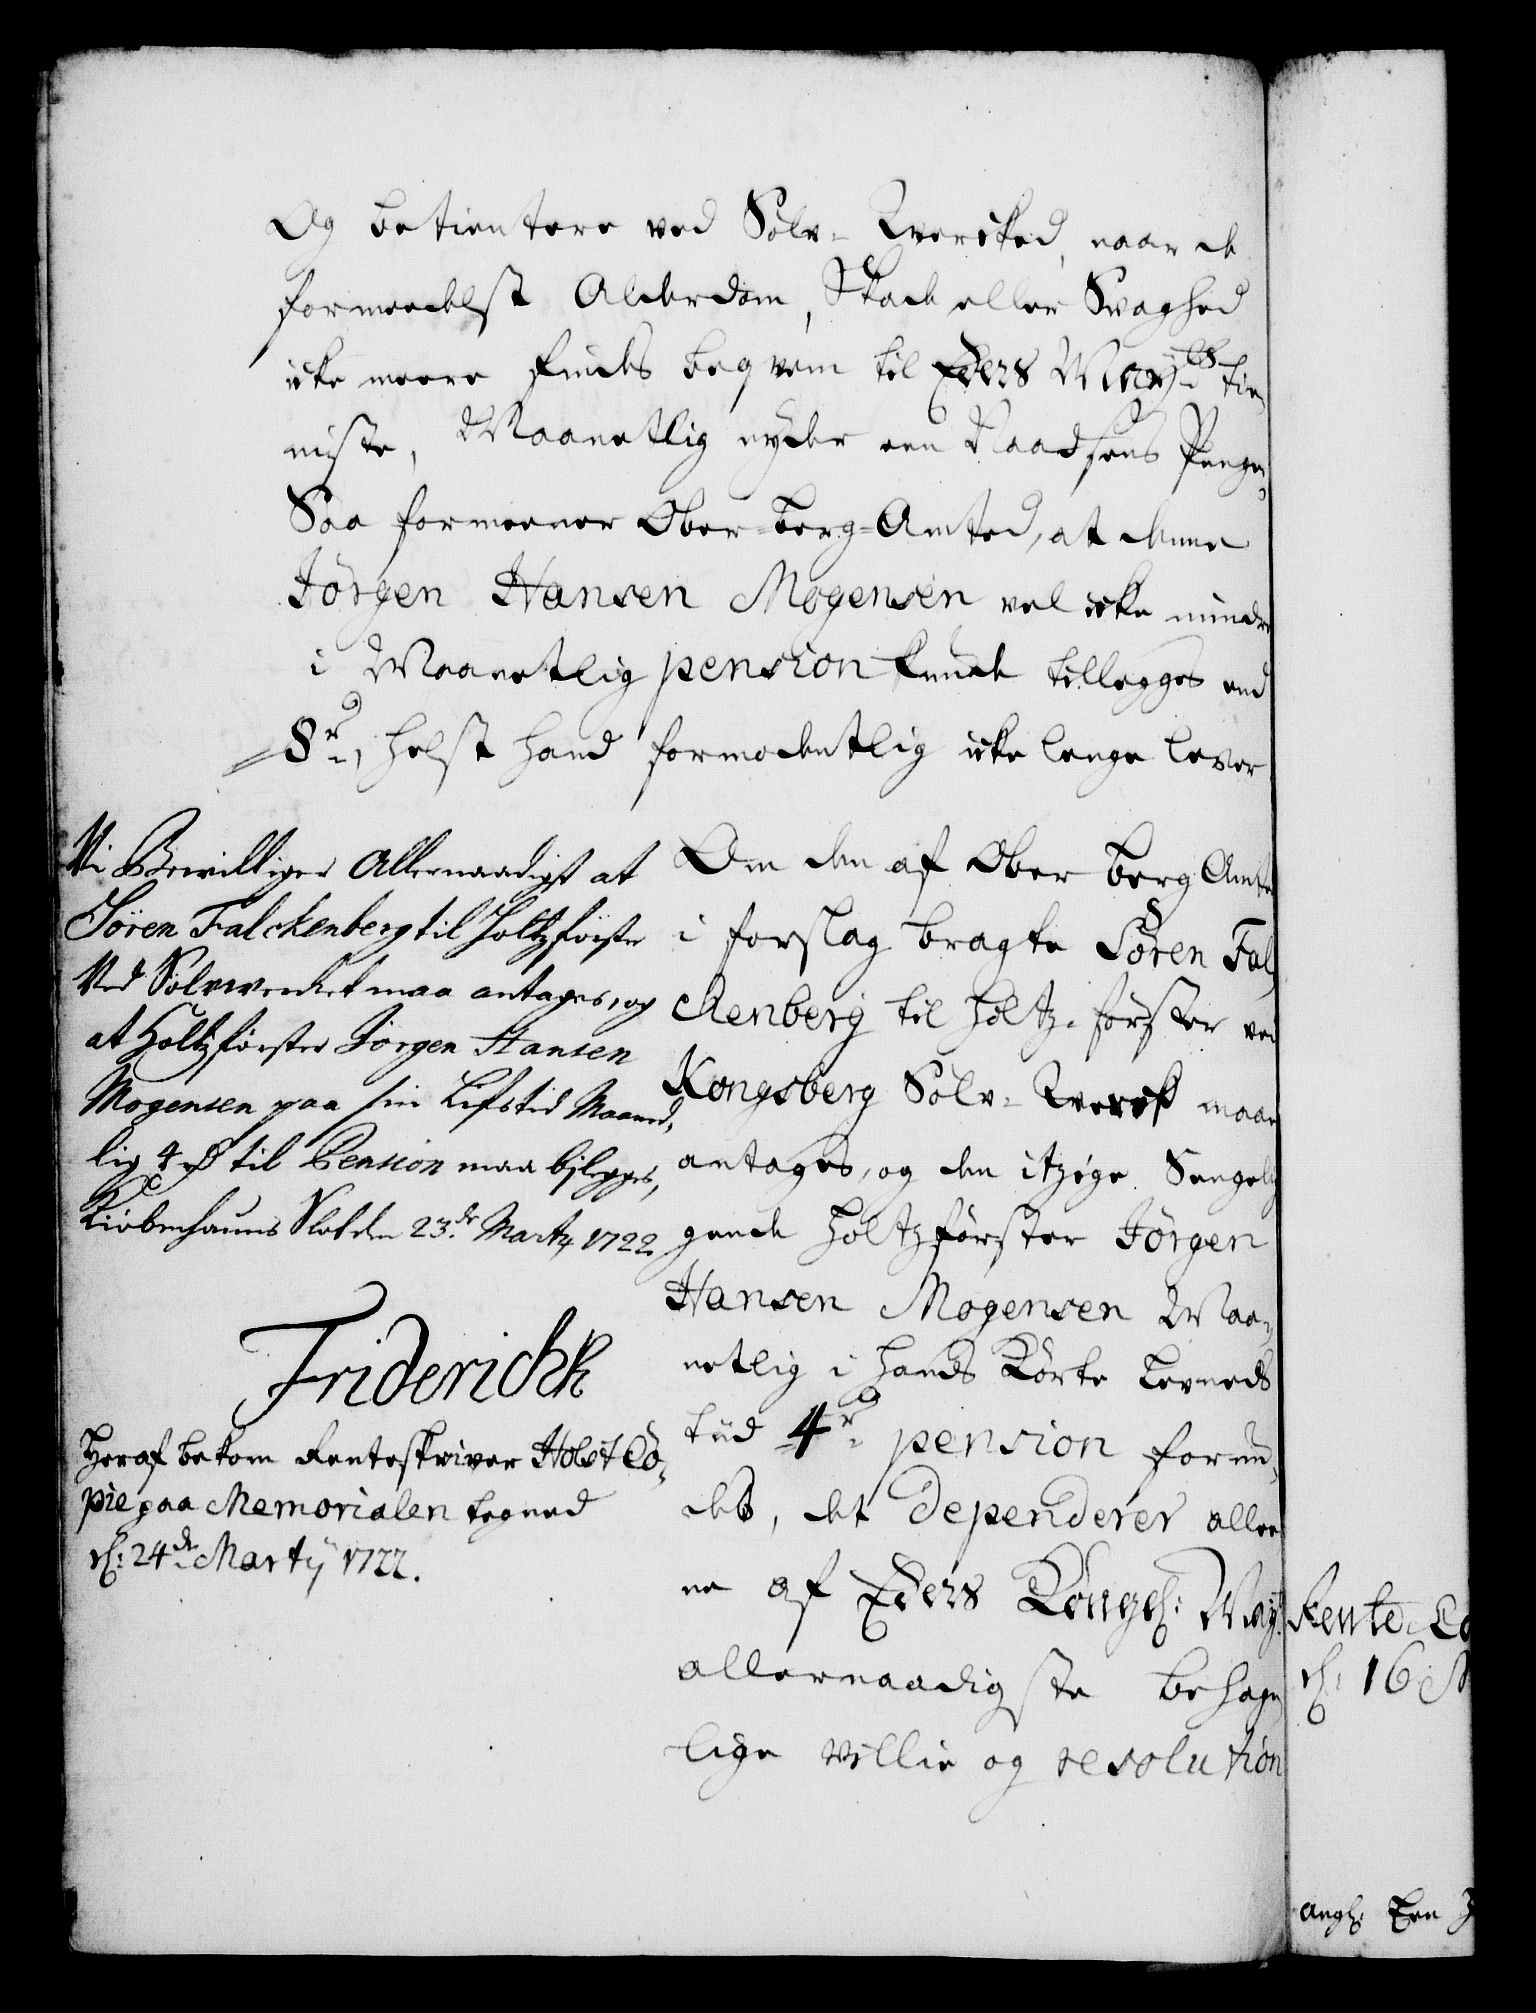 Og betientere ved Sølv-Wercked, naar de
formeedelst Alderdom, Skade eller Svaghed
icke meere findes beqvem til Eders Mayts tie-
niste, Maanetlig nyder een Naadsens Penge,
Saa formeener Ober-Berg-Amted, at denne
Jörgen Hansen Mogensen vel icke mindre
i Maanetlig pension kunde tillegges end
8 r, helst hand formodentlig icke lenge lever
Vi Bewilliger Allernaadigst at
Sören Falckenberg til Holtzförster
Ved Sölvwerket maa antages, og
at Holtzförster Jörgen Hansen
Mogensen paa sin Lifstid Maaned,
lig 4 rd til Pension maa bylegges,
Kiöbenhauns Slot den 23de Marty 1722
Friderich R
Heraf bekom Renteskriver Holst Co-
pie paa Memorialen tegned
d: 24de Martij 1722.
Om den af Ober Berg Amted
i forslag bragte Sören Fal-
ckenberg til Holtz-förster ved
Kongsberg Sölv-Werck maae
antages, og den itzige Sengelig-
gende Holtzförster Jörgen
Hansen Mogensen Maa-
netlig i hands Korte Levneds
tiid 4 r pension forun-
des, det dependerer allee-
ne af Eders Kongel: May:
allernaadigste behage-
lige villie og resolution
Rente Ca
d: 16 M
angl: Een